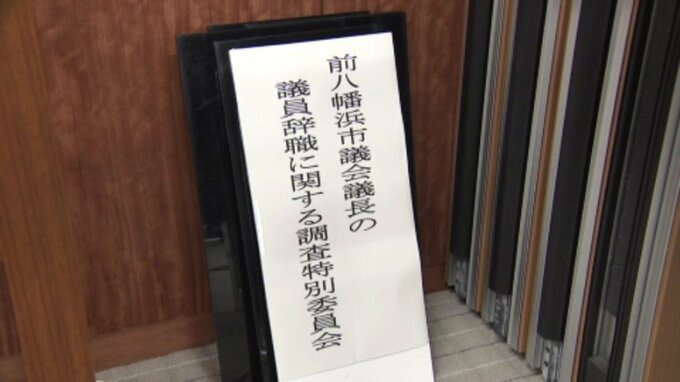 前八幡浜市議会議長の
議員辞職に関する調査特別委員会